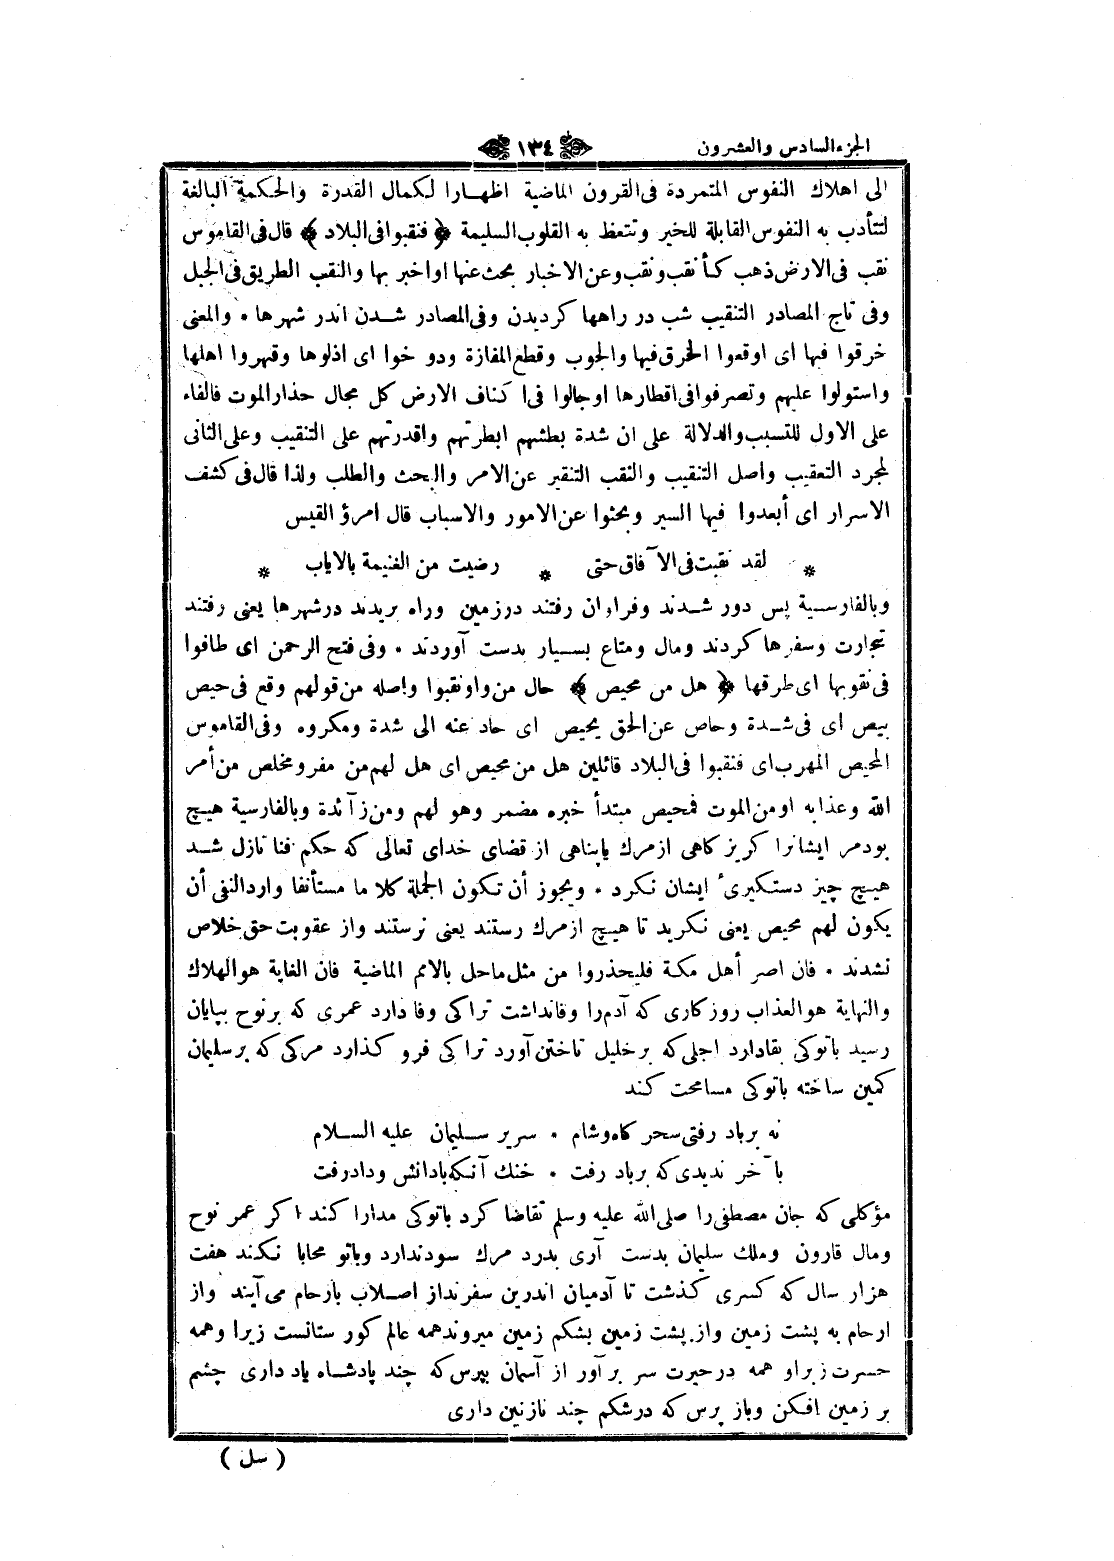 الجزء السادس والعشرون
١٣٤
الى اهلاك النفوس المتمردة فى القرون الماضية اظهارا لكمال القدرة والحكمة البالغة
لتتأدب به النفوس القابلة للخير وتتعظ به القلوب السليمة ﴿ فنقبوا فى البلاد ﴾ قال فى القاموس
نقب فى الارض ذهب كأنقب ونقب وعن الاخبار بحث عنها او اخبر بها والنقب الطريق فى الجبل
وفى تاج المصادر التنقيب شب در راهها كرديدن وفى المصادر شدن اندر شهرها ٠ والمعنى
خرقوا فيها اى اوقعوا الخرق فيها والجوب وقطع المفازة ودوخوا اى اذلوها وقهروا اهلها
واستولوا عليهم وتصرفوا فى اقطارها او جالوا فى اكناف الارض كل مجال حذار الموت فالفاء
على الاول للتسبب والدلالة على ان شدة بطشهم ابطرتهم واقدرتهم على التنقيب وعلى الثانى
لمجرد التعقيب واصل التنقيب والنقب التنقير عن الامر والبحث والطلب ولذا قال فى كشف
الاسرار اى أبعدوا فيها السير وبحثوا عن الامور والاسباب قال امرؤ القيس
* لقد نقبت فى الآفاق حتى * رضيت من الغنيمة بالاياب *
وبالفارسية پس دور شدند وفراوان رفتند در زمين وراه بريدند در شهرها يعنى رفتند
تجارت وسفرها كردند ومال ومتاع بسيار بدست آوردند ٠ وفى فتح الرحمن اى طافوا
فى نقوبها اى طرقها ﴿ هل من محيص ﴾ حال من واو نقبوا واصله من قولهم وقع فى حيص
بيص اى فى شدة وحاص عن الحق يحيص اى حاد عنه الى شدة ومكروه وفى القاموس
المحيص المهرب اى فنقبوا فى البلاد قائلين هل من محيص اى هل لهم من مفر ومخلص من أمر
الله وعذابه او من الموت فمحيص مبتدأ خبره مضمر وهو لهم ومن زآئدة وبالفارسية هيچ
بود مر ايشانرا كريز كاهى از مرك يا پناهى از قضاى خداى تعالى كه حكم فنا نازل شد
هيچ چيز دستكيرىٔ ايشان نكرد ٠ ويجوز أن تكون الجملة كلاما مستأنفا وارد النفى أن
يكون لهم محيص يعنى نكريد تا هيچ از مرك رستند يعنى نرستند واز عقوبت حق خلاص
نشدند ٠ فان اصر أهل مكة فليحذروا من مثل ماحل بالامم الماضية فان الغاية هو الهلاك
والنهاية هو العذاب روزكارى كه آدم را وفا نداشت ترا كى وفا دارد عمرى كه بر نوح بپايان
رسيد باتوكى بقا دارد اجلى كه بر خليل تاختن آورد ترا كى فرو كذارد مركى كه بر سليمان
كمين ساخته باتوكى مسامحت كند
نه برباد رفتى سحر كاه وشام ٠ سرير سليمان عليه السلام
بآخر نديدى كه برباد رفت ٠ خنك آنكه بادانش وداد رفت
مؤكلى كه جان مصطفى را صلى الله عليه وسلم تقاضا كرد باتوكى مدارا كند اكر عمر نوح
ومال قارون وملك سليمان بدست آرى بدرد مرك سود ندارد وباتو محابا نكند هفت
هزار سال كه كسرى كذشت تا آدميان اندرين سفرند از اصلاب بارحام مى آيند واز
ارحام به پشت زمين واز پشت زمين بشكم زمين ميروند همه عالم كورستانست زيرا وهمه
حسرت زبراو همه در حيرت سر بر آور از آسمان بپرس كه چند پادشاه ياد دارى چشم
بر زمين افكن وباز پرس كه در شكم چند نازنين دارى
( سل )